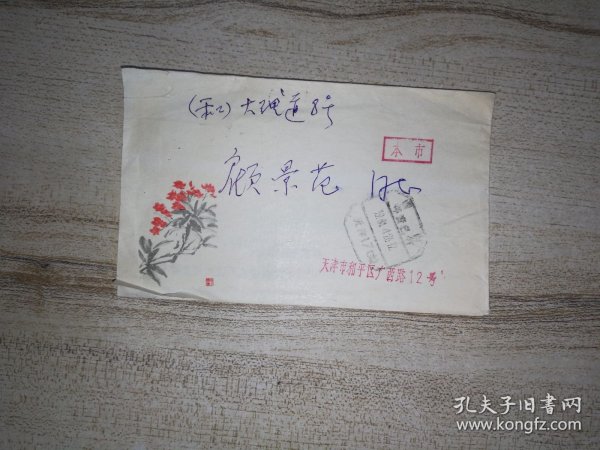 (和) 大理道8号
本市
顾景范 同志
天津市和平区广西路12号
孔夫子旧书网
www.kongfz.com